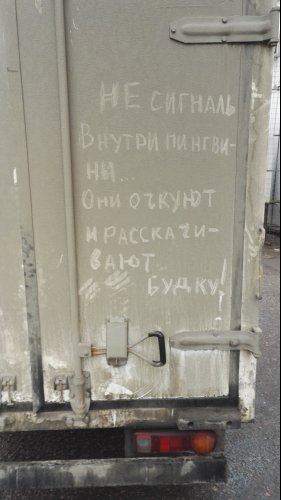 НЕ СИГНАЛЬ
ВНУТРИ ПИНГВИ-
НИ...
ОНИ ОЧКУЮТ
И РАССКАЧИ-
ВАЮТ
БУДКУ!